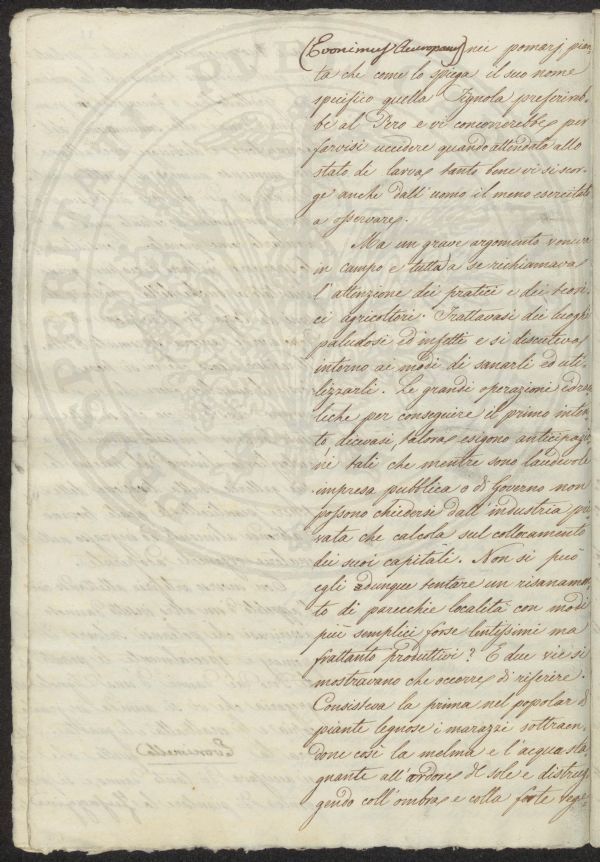 (Evonimus Aeuropaeus) nei pomarj pian-
ta che come lo spiega il suo nome
specifico quella Tignola preferireb-
be al Pero e vi concorrerebbe per
farvisi uccidere quando attendata allo
stato di larva tanto bene vi si scor-
ge anche dall'uomo il meno esercitato
a osservare.
Ma un grave argomento veniva
in campo e tutta a se richiamava
l'attenzione dei pratici e dei teori-
ci agricoltori. Trattavasi dei luoghi
paludosi ed infetti e si discuteva
intorno ai modi di sanarli ed uti-
lizzarli. Le grandi operazioni idrau-
liche per conseguire il primo inten-
to, dicevasi talora esigono anticipazio-
ni tali che mentre sono laudevole
impresa pubblica o di Governo non
possono chiedersi dall'industria pri-
vata che calcola sul collocamento
dei suoi capitali. Non si può
egli adunque tentare un risanamen-
to di parecchie località con modi
più semplici forse lentissimi ma
frattanto produttivi? E due vie si
mostravano che occorre di riferire.
Consisteva la prima nel popolar di
piante legnose i marazzi sottraen-
done così la melma e l'acqua sta-
gnante all'ardore del sole e distrug-
gendo coll'ombra e colla forte vege-
PROSPERITATI PUBLICAE